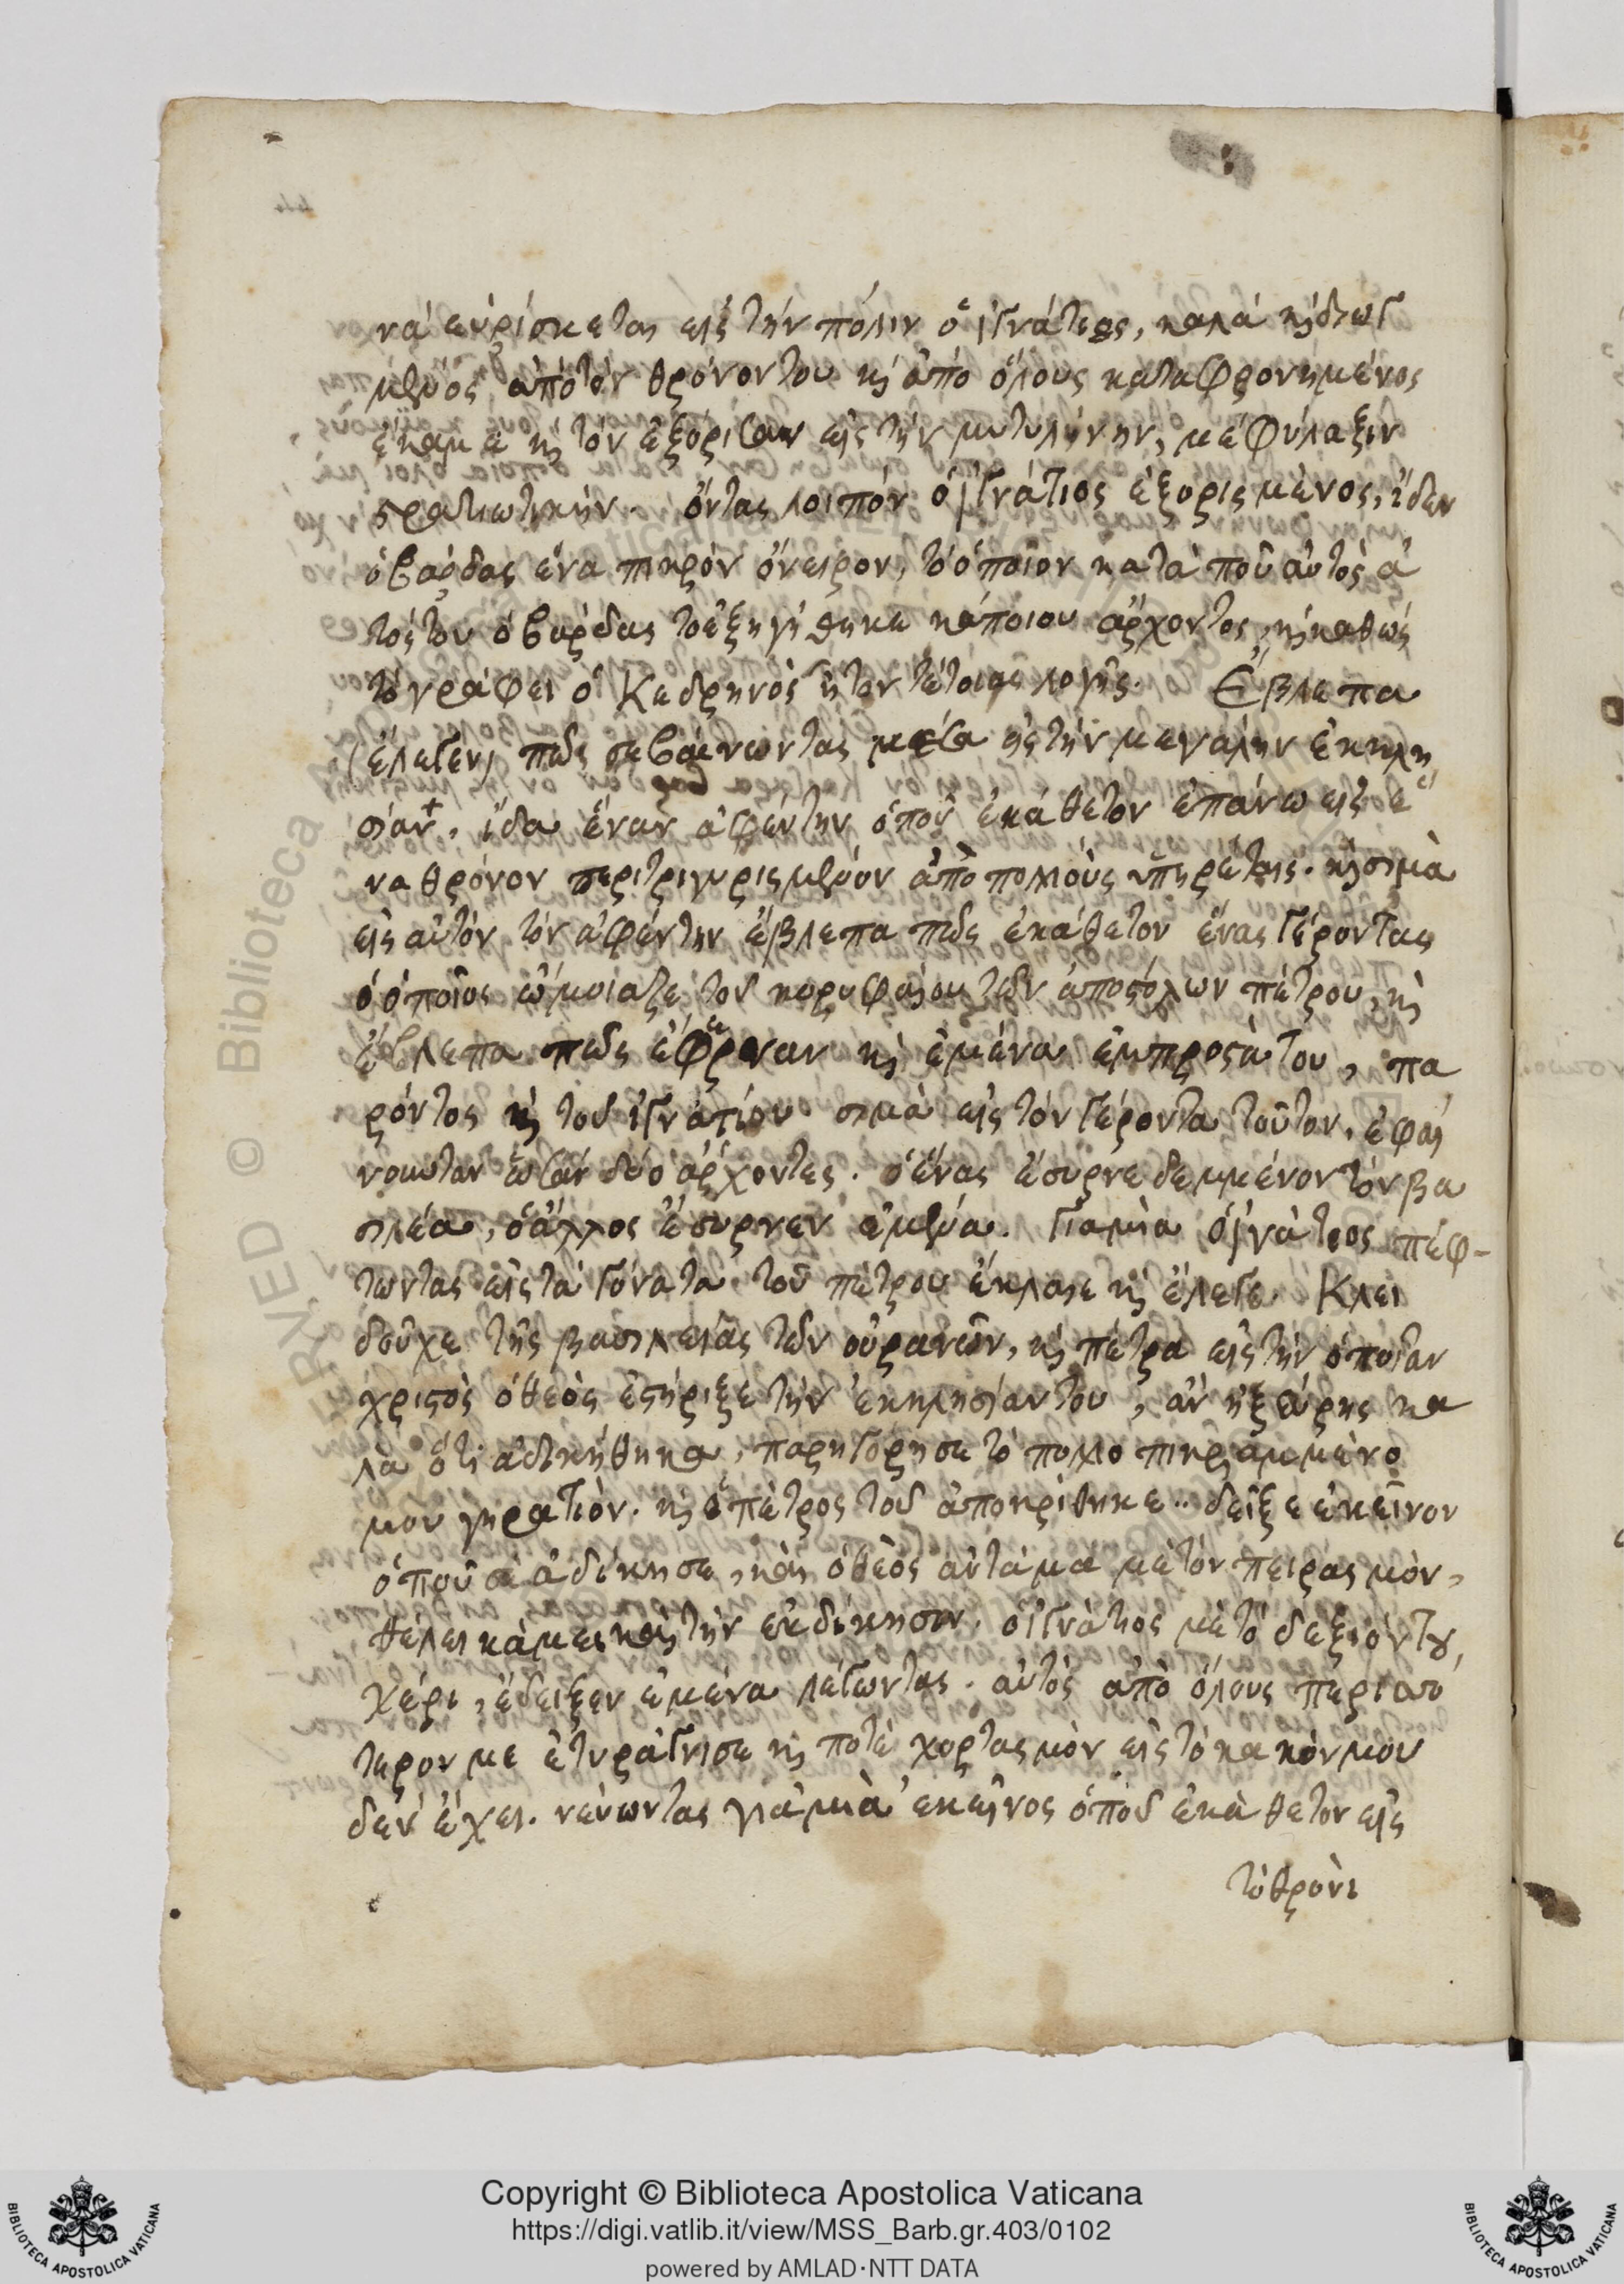 νὰ εὑρίσκεται εἰς τὴν πόλιν ὁ ἰγνάτιος, καλὰ κὶ διωγ
μένος ἀπὸ τὸν θρόνον του κὶ ἀπὸ ὅλους καταφρονημένος
ἔκαμε κὶ τὸν ἐξόρισαν εἰς τὴν μυτυλήνην, μὲ φύλαξιν
στρατιωτικήν. ὄντας λοιπὸν ὁ ἰγνάτιος ἐξορισμένος, ἴδεν
ὁ βάρδας ἕνα πικρὸν ὄνειρον, τὸ ὁποῖον κατὰ ποῦ αὐτὸς ἀ
τός του ὁ βάρδας τὸ ἐξηγήθηκε κάποιου ἄρχοντος, κὶ καθὼς
τὸ γράφει ὁ Κεδρηνὸς ἦτον τέτοιας λογῆς. Ἔβλεπα
(ἔλεγεν) πῶς σεβαίνωντας μέσα εἰς τὴν μεγάλην ἐκκλη
σίαν, ἴδα ἕναν ἀφέντην ὁποῦ ἐκάθετον ἐπάνω εἰς ἕ
να θρόνον περιτριγυρισμένον ἀπὸ πολλοὺς ὑπηρέταις. κὶ σιμὰ
εἰς αὐτὸν τὸν ἀφέντην ἔβλεπα πῶς ἐκάθετον ἕνας γέροντας
ὁ ὁποῖος ὡμοίαζε τοῦ κορυφαίου τῶν ἀποστόλων πέτρου, κὶ
ἔβλεπα πῶς ἐφέραναν κὶ ἐμένα ἐμπροστά του, πα
ρόντος κὶ τοῦ ἰγνατίου. σιμὰ εἰς τὸν γέροντα τοῦτον, ἐφαί
νουνταν ὡσὰν δύο ἄρχοντες. ὁ ἕνας ἔσυρνε δεμμένον τὸν βα
σιλέα, ὁ ἄλλος ἔσυρνεν ἐμένα. Γιαμία ὁ ἰγνάτιος πέφ-
τωντας εἰς τὰ γόνατα τοῦ πέτρου ἔκλαιε κὶ ἔλεγε. Κλει
δοῦχε τῆς βασιλείας τῶν οὐρανῶν, κὶ πέτρα εἰς τὴν ὁποίαν
χριστὸς ὁ θεὸς ἐστήριξε τὴν ἐκκλησίαν του, ἂν ἠξεύρης κα
λὰ ὅτι ἀδικήθηκα, παρηγόρησε τὸ πολλὸ πικραμμένο
μου γηρατιόν. κὶ ὁ πέτρος τοῦ ἀποκρίθηκε.. δεῖξε ἐκεῖνον
ὁποῦ σὲ ἀδίκησε, καὶ ὁ θεὸς ἀντάμα μὲ τὸν πειρασμὸν,
θέλει κάμει καὶ τὴν ἐκδίκησιν. ὁ ἰγνάτιος μὲ τὸ δεξιόν του
χέρι, ἔδειξεν ἐμένα λέγωντας. αὐτὸς ἀπὸ ὅλους περισσό
τερον με ἐτυράγνισε κὶ ποτὲ χορτασμὸν εἰς τὸ κακόν μου
δὲν ἔχει. νεύωντας γιαμιὰ ἐκεῖνος ὁποῦ ἐκάθετον εἰς
τὸ θρόνι
Copyright © Biblioteca Apostolica Vaticana
https://digi.vatlib.it/view/MSS_Barb.gr.403/0102
powered by AMLAD·NTT DATA